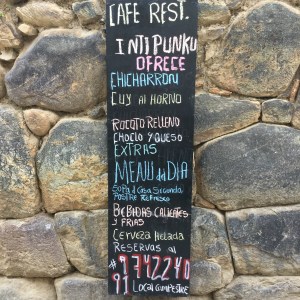 CAFE REST.
INTI PUNKU
OFRECE
CHICHARRON
CUY al HORNO
ROCOTO RELLENO
CHOCLO Y QUESO
EXTRAS
MENU del DIA
SOPA d Casa Segundo
POSTRE Refresco
BEBIDAS CALIENTES
Y FRIAS
CERVEZA Helada
RESERVAS al
#9742240
91 LOCAL CAMPESTRE